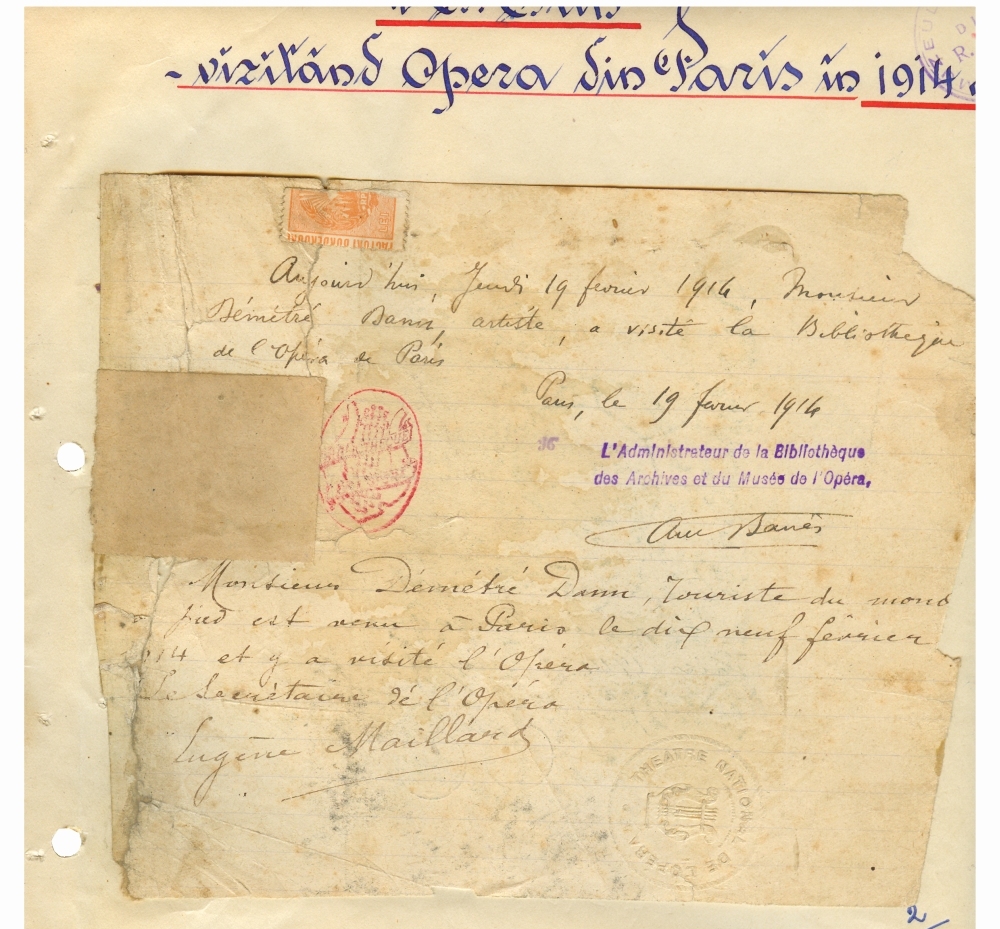 - vizitând Opera din Paris în 1914.
Aujourd'hui, Jeudi 19 fevrier 1914, Monsieur
Démétré Dann, artiste, a visité la Bibliothèque
de l'Opéra de Paris
Paris, le 19 février 1914
L'Administrateur de la Bibliothèque
des Archives et du Musée de l'Opéra,
Banès
Monsieur Démétré Dann, Touriste du mond
pied est venu à Paris le dix neuf février
14 et y a visité l'Opéra
Le Secrétaire dé l'Opéra
Eugène Maillard
THEATRE NATIONAL DE L'OPERA
2/